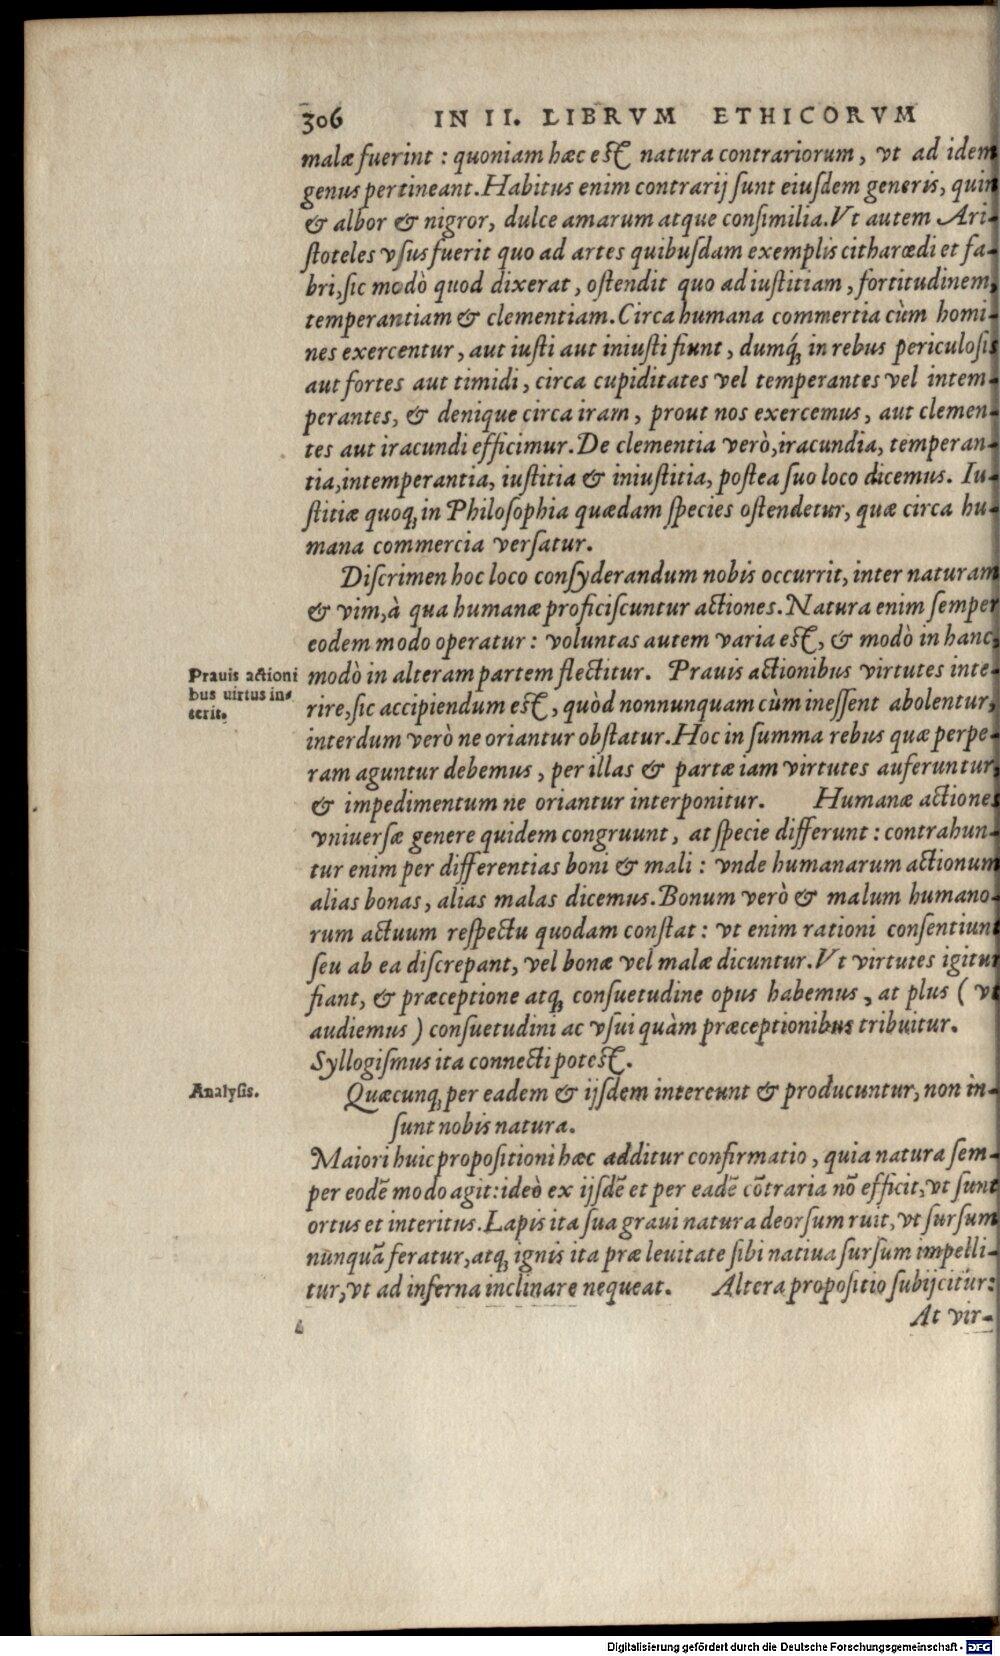 306 IN II. LIBRVM ETHICORVM
malæ fuerint : quoniam hæc est natura contrariorum, vt ad idem
genus pertineant. Habitus enim contrarij sunt eiusdem generis, quin
& albor & nigror, dulce amarum atque consimilia. Vt autem Ari-
stoteles vsus fuerit quo ad artes quibusdam exemplis citharœdi et fa-
bri, sic modò quod dixerat, ostendit quo ad iustitiam, fortitudinem,
temperantiam & clementiam. Circa humana commertia cùm homi-
nes exercentur, aut iusti aut iniusti fiunt, dumq́; in rebus periculosis
aut fortes aut timidi, circa cupiditates vel temperantes vel intem-
perantes, & denique circa iram, prout nos exercemus, aut clemen-
tes aut iracundi efficimur. De clementia verò, iracundia, temperan-
tia, intemperantia, iustitia & iniustitia, postea suo loco dicemus. Iu-
stitiæ quoq; in Philosophia quædam species ostendetur, quæ circa hu-
mana commercia versatur.
Discrimen hoc loco consyderandum nobis occurrit, inter naturam
& vim, à qua humanæ proficiscuntur actiones. Natura enim semper
eodem modo operatur : voluntas autem varia est, & modò in hanc,
modò in alteram partem flectitur. Prauis actionibus virtutes inte-
Prauis actioni
bus uirtus in-
terit.
rire, sic accipiendum est, quòd nonnunquam cùm inessent abolentur,
interdum verò ne oriantur obstatur. Hoc in summa rebus quæ perpe-
ram aguntur debemus, per illas & partæ iam virtutes auferuntur,
& impedimentum ne oriantur interponitur. Humanæ actiones
vniuersæ genere quidem congruunt, at specie differunt : contrahun-
tur enim per differentias boni & mali : vnde humanarum actionum
alias bonas, alias malas dicemus. Bonum verò & malum humano-
rum actuum respectu quodam constat : vt enim rationi consentiunt
seu ab ea discrepant, vel bonæ vel malæ dicuntur. Vt virtutes igitur
fiant, & præceptione atq; consuetudine opus habemus, at plus ( vt
audiemus ) consuetudini ac vsui quàm præceptionibus tribuitur.
Syllogismus ita connecti potest.
Analysis.
Quæcunq; per eadem & ijsdem intereunt & producuntur, non in-
sunt nobis natura.
Maiori huic propositioni hæc additur confirmatio, quia natura sem-
per eodē modo agit: ideò ex ijsdē et per eadē cōtraria nō efficit, vt sunt
ortus et interitus. Lapis ita sua graui natura deorsum ruit, vt sursum
nunquā feratur, atq; ignis ita præ leuitate sibi natiua sursum impelli-
tur, vt ad inferna inclinare nequeat. Altera propositio subijcitur:
At vir-
Digitalisierung gefördert durch die Deutsche Forschungsgemeinschaft - DFG